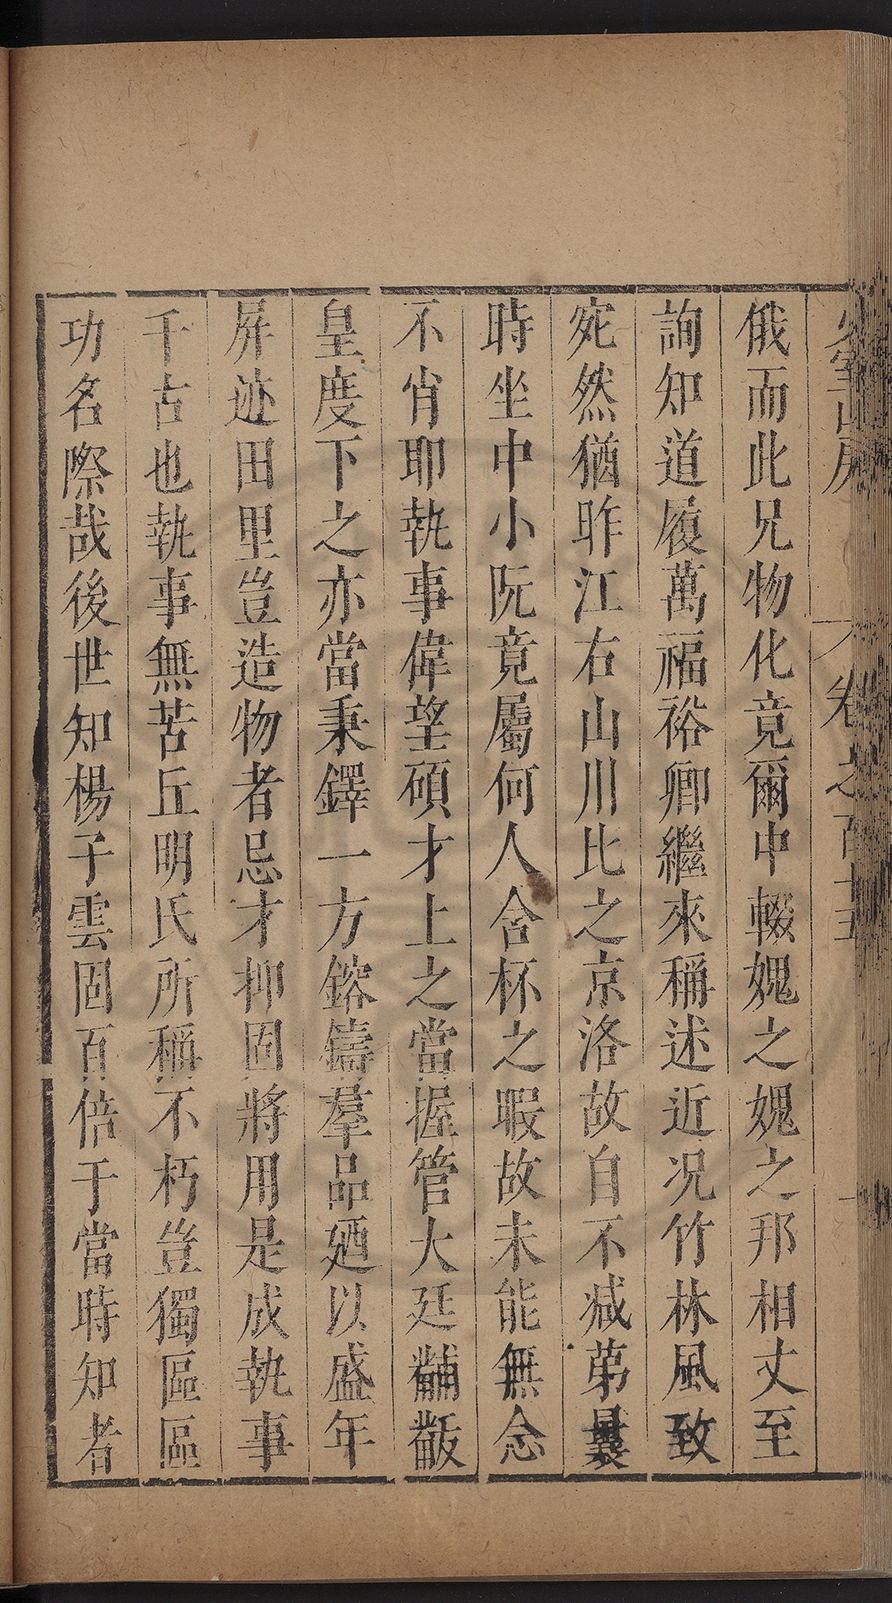 卷之百十五
俄而此兄物化竟爾中輟媿之媿之邦相丈至
詢知道履萬福裕卿繼來稱述近况竹林風致
宛然猶昨江右山川比之京洛故自不減第曩
時坐中小阮竟屬何人含杯之暇故未能無念
不肖耶執事偉望碩才上之當握管大廷黼黻
皇度下之亦當秉鐸一方鎔鑄羣品廼以盛年
屏迹田里豈造物者忌才抑固將用是成執事
千古也執事無苦丘明氏所稱不朽豈獨區區
功名際哉後世知楊子雲固百倍于當時知者